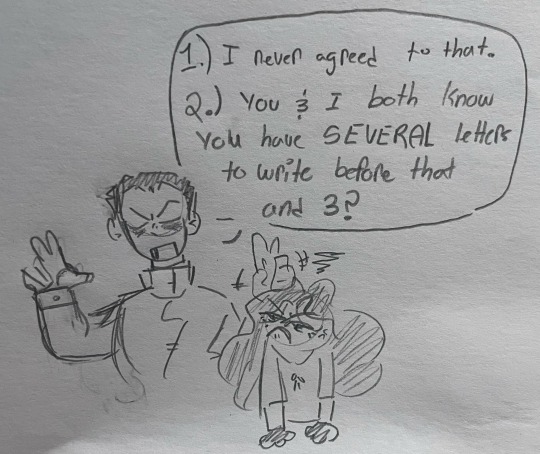 1.) I never agreed to that.
2.) You & I both know
you have SEVERAL letters
to write before that
and 3?